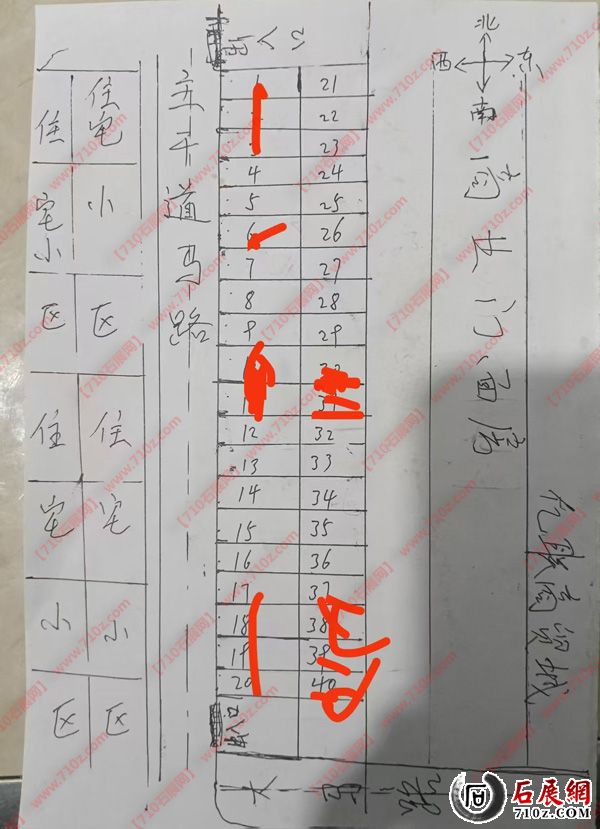 北
西 东
南
商业门面房
亿联商贸城
主干道马路
住宅小区
住宅小区
住宅小区
住宅小区
入口
21
22
23
4 24
5 25
6 26
7 27
8 28
9 29
12 32
13 33
14 34
15 35
16 36
17 37
18 38
19 39
20 40
大马路
【710石展网】 www.710z.com
石展網
www.710z.com